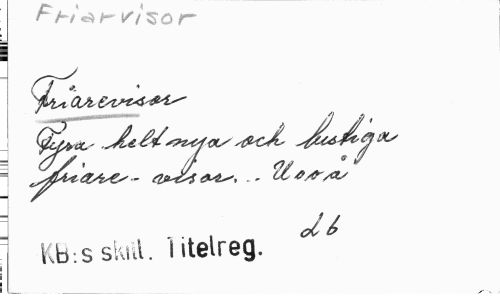 Friarvisor
Friarevisor
Fyra helt nya och lustiga
friare - visor... U o o å
d b
KB:s skill. Titelreg.